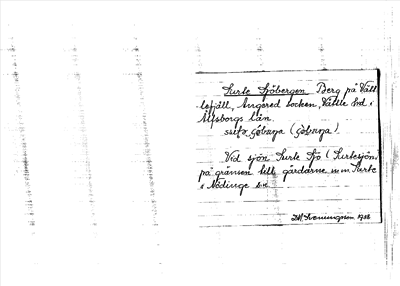 Surte Sjöbergen Berg på Vätt
lefjäll, Angered socken, Vättle hd i
Älfsborgs län.
Vid sjön Surte Sjö (Surtesjön)
på gränsen till gårdarne inom Surte
i Nödinge sn.